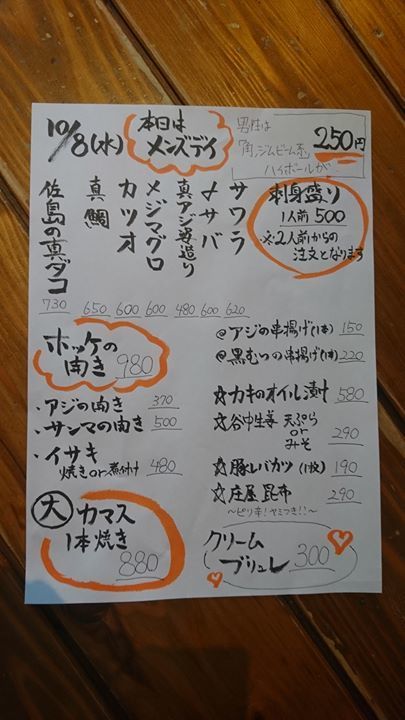 10/8(水)
本日は
メンズデイ
男性は
「角」、ジムビーム系
ハイボールが
250円
刺身盛り
1人前 500
※2人前からの
注文となります
サワラ 620
〆サバ 600
真アジ姿造り 480
メジマグロ 600
カツオ 600
真鯛 650
佐島の真ダコ 730
ホッケの
開き 980
・アジの開き 370
・サンマの開き 500
・イサキ
焼きor煮付け 480
大 カマス
1本焼き
880
@アジの串揚げ(1本) 150
@黒むつの串揚げ(1本) 220
☆カキのオイル漬け 580
☆谷中生姜 天ぷら
or
みそ 290
☆豚レバカツ(1枚) 190
☆庄屋昆布 290
〜ピリ辛!ヤミつき!!〜
クリーム
ブリュレ 300